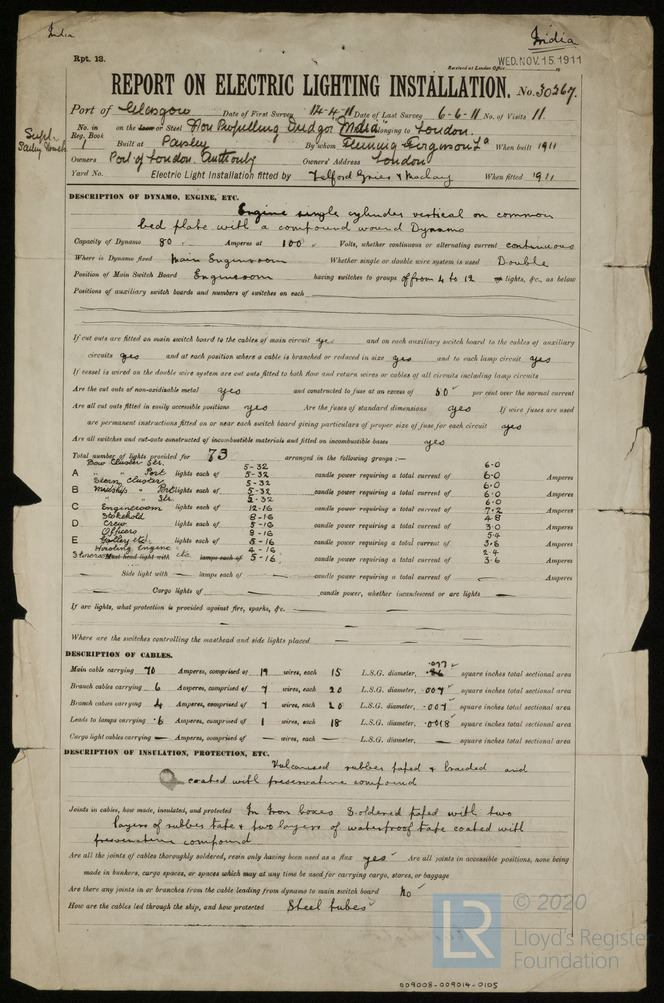 India
India
Rpt. 13.
Received at London Office WED. NOV. 15. 1911
REPORT ON ELECTRIC LIGHTING INSTALLATION. No. 30267.
Port of Glasgow Date of First Survey 14-4-11 Date of Last Survey 6-6-11 No. of Visits 11.
No. in on the Iron or Steel Non Propelling Dredger India belonging to London.
Reg. Book
Supl.
1 Built at Paisley By whom Fleming Ferguson Ld When built 1911
Owners Port of London Authority Owners' Address London
Yard No. Electric Light Installation fitted by Telford Grier & Mackay When fitted 1911
DESCRIPTION OF DYNAMO, ENGINE, ETC.
Engine single cylinder vertical on common
bed plate with a compound wound Dynamo
Capacity of Dynamo 80 Amperes at 100 Volts, whether continuous or alternating current continuous
Where is Dynamo fixed Main Engineroom Whether single or double wire system is used Double
Position of Main Switch Board Engineroom having switches to groups of from 4 to 12 lights, &c., as below
Positions of auxiliary switch boards and numbers of switches on each
If cut outs are fitted on main switch board to the cables of main circuit yes and on each auxiliary switch board to the cables of auxiliary
circuits yes and at each position where a cable is branched or reduced in size yes and to each lamp circuit yes
If vessel is wired on the double wire system are cut outs fitted to both flow and return wires or cables of all circuits including lamp circuits
Are the cut outs of non-oxidizable metal yes and constructed to fuse at an excess of 50 per cent over the normal current
Are all cut outs fitted in easily accessible positions yes Are the fuses of standard dimensions yes If wire fuses are used
are permanent instructions fitted on or near each switch board giving particulars of proper size of fuse for each circuit yes
Are all switches and cut-outs constructed of incombustible materials and fitted on incombustible bases yes
Total number of lights provided for 73 arranged in the following groups :—
Bow Cluster Str. 5-32 6.0
A " " Port lights each of 5-32 candle power requiring a total current of 6.0 Amperes
Stern Cluster 5-32 6.0
B Midship " Port lights each of 5-32 candle power requiring a total current of 6.0 Amperes
" Str. 5-32 6.0
C Engineroom lights each of 12-16 candle power requiring a total current of 7.2 Amperes
Stokehold 8-16 4.8
D Crew lights each of 5-16 candle power requiring a total current of 3.0 Amperes
Officers 9-16 5.4
E Galley etc. lights each of 6-16 candle power requiring a total current of 3.6 Amperes
Hoisting Engine 4-16 2.4
Mast head light with etc lamps each of 5-16 candle power requiring a total current of 3.6 Amperes
Side light with — lamps each of — candle power requiring a total current of — Amperes
Cargo lights of — candle power, whether incandescent or arc lights —
If arc lights, what protection is provided against fire, sparks, &c. —
Where are the switches controlling the masthead and side lights placed —
DESCRIPTION OF CABLES.
Main cable carrying 70 Amperes, comprised of 19 wires, each 15 L.S.G. diameter, .077 square inches total sectional area
Branch cables carrying 6 Amperes, comprised of 7 wires, each 20 L.S.G. diameter, .007 square inches total sectional area
Branch cables carrying 4 Amperes, comprised of 7 wires, each 20 L.S.G. diameter, .007 square inches total sectional area
Leads to lamps carrying .6 Amperes, comprised of 1 wires, each 18 L.S.G. diameter, .0018 square inches total sectional area
Cargo light cables carrying — Amperes, comprised of — wires, each — L.S.G. diameter, — square inches total sectional area
DESCRIPTION OF INSULATION, PROTECTION, ETC.
Vulcanised rubber taped & braided and
coated with preservative compound
Joints in cables, how made, insulated, and protected In Iron boxes Soldered taped with two
layers of rubber tape & two layers of waterproof tape coated with
preservative compound
Are all the joints of cables thoroughly soldered, resin only having been used as a flux yes Are all joints in accessible positions, none being
made in bunkers, cargo spaces, or spaces which may at any time be used for carrying cargo, stores, or baggage
Are there any joints in or branches from the cable leading from dynamo to main switch board No
How are the cables led through the ship, and how protected Steel tubes
LR © 2020
Lloyd's Register
Foundation
009008-009014-0105